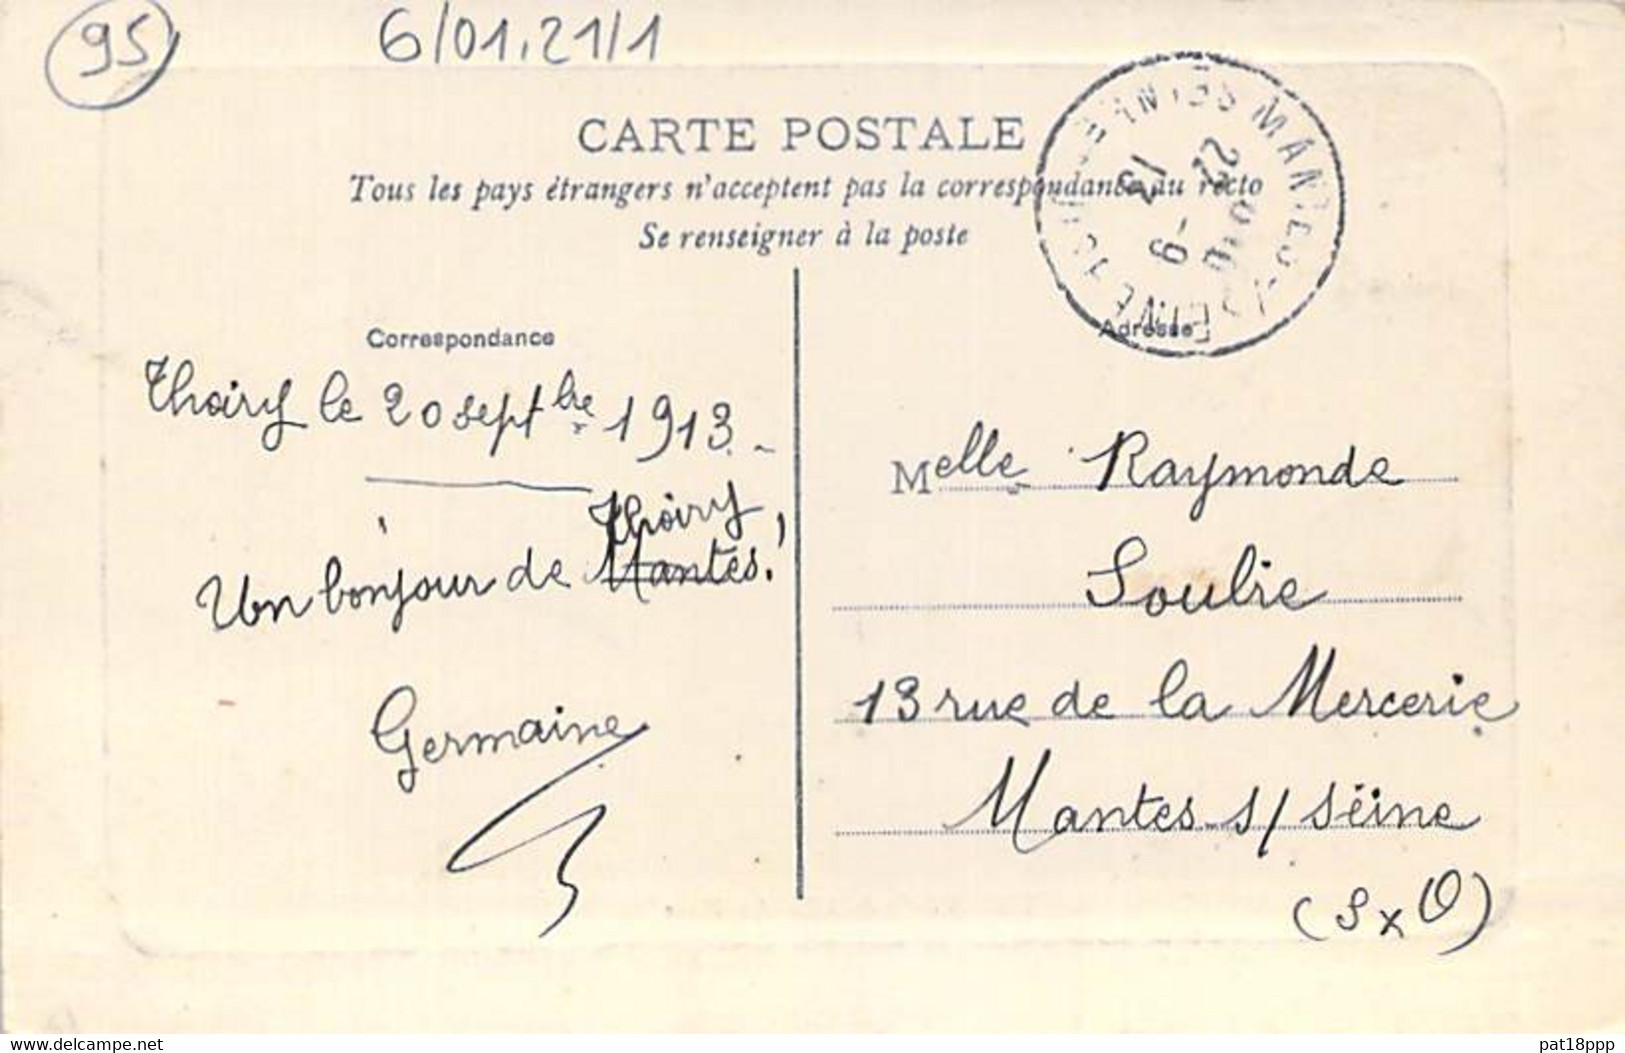 95
6/01.21/1
CARTE POSTALE
Tous les pays étrangers n'acceptent pas la correspondance au recto
Se renseigner à la poste
Correspondance
Thoiry le 20 septbre 1913.-
Thoiry
Un bonjour de Mantes!
Germaine
Adresse
Melle Raymonde
Soulié
13 rue de la Mercerie
Mantes s/ Seine
(S x O)
pat18ppp